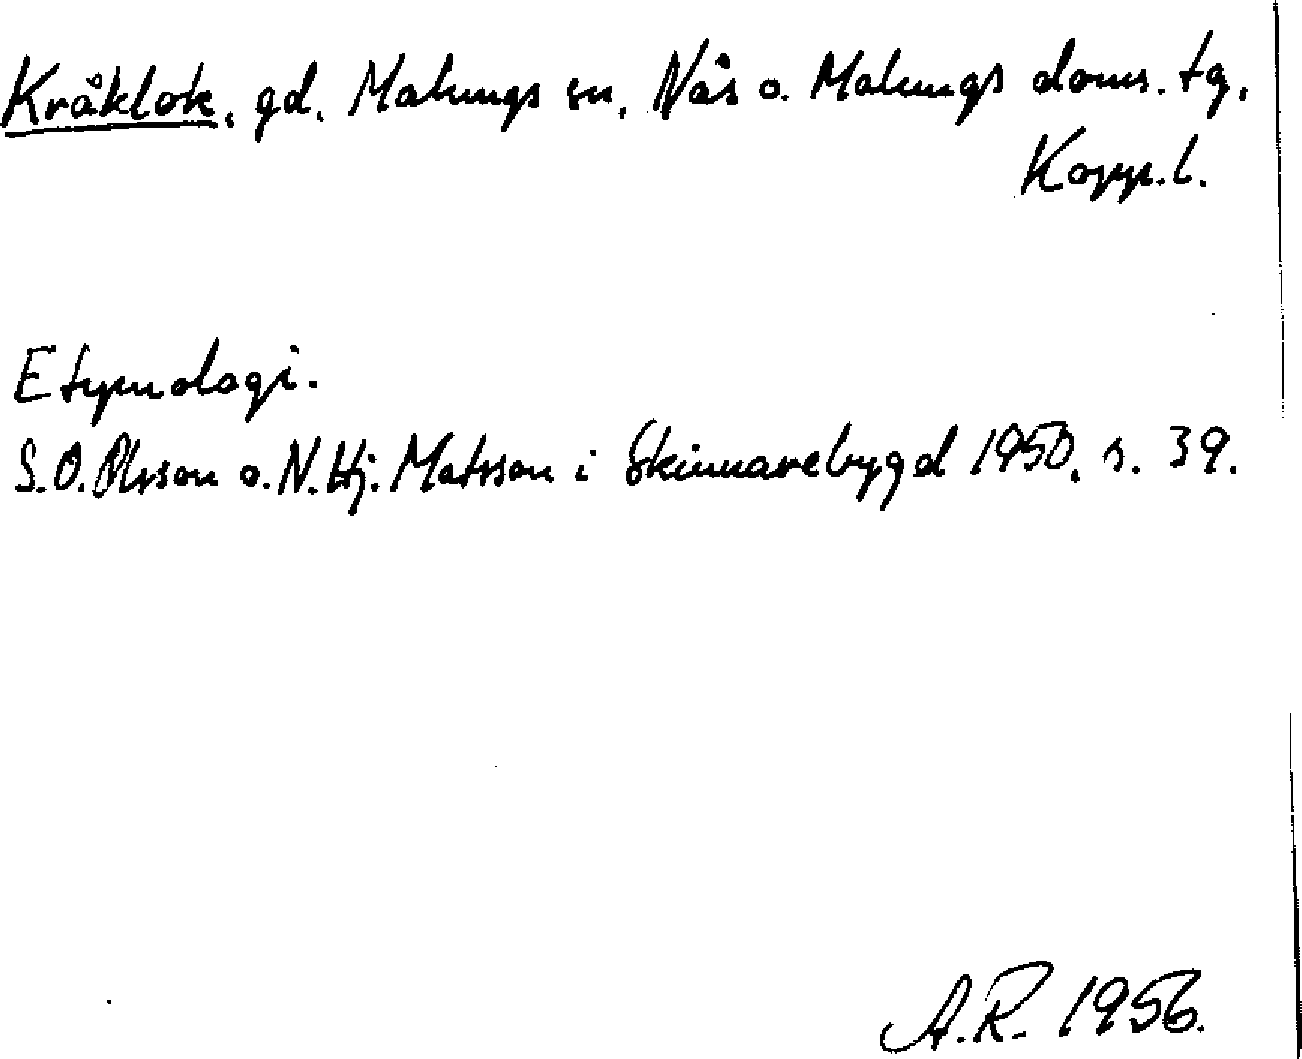 Kråklok, gd, Malungs sn, Nås o. Malungs doms. tg,
Kopp.l.
Etymologi.
S.O. Olsson o. N. Hj. Matsson i Skinnarebygd 1950, s. 39.
A.R. 1956.